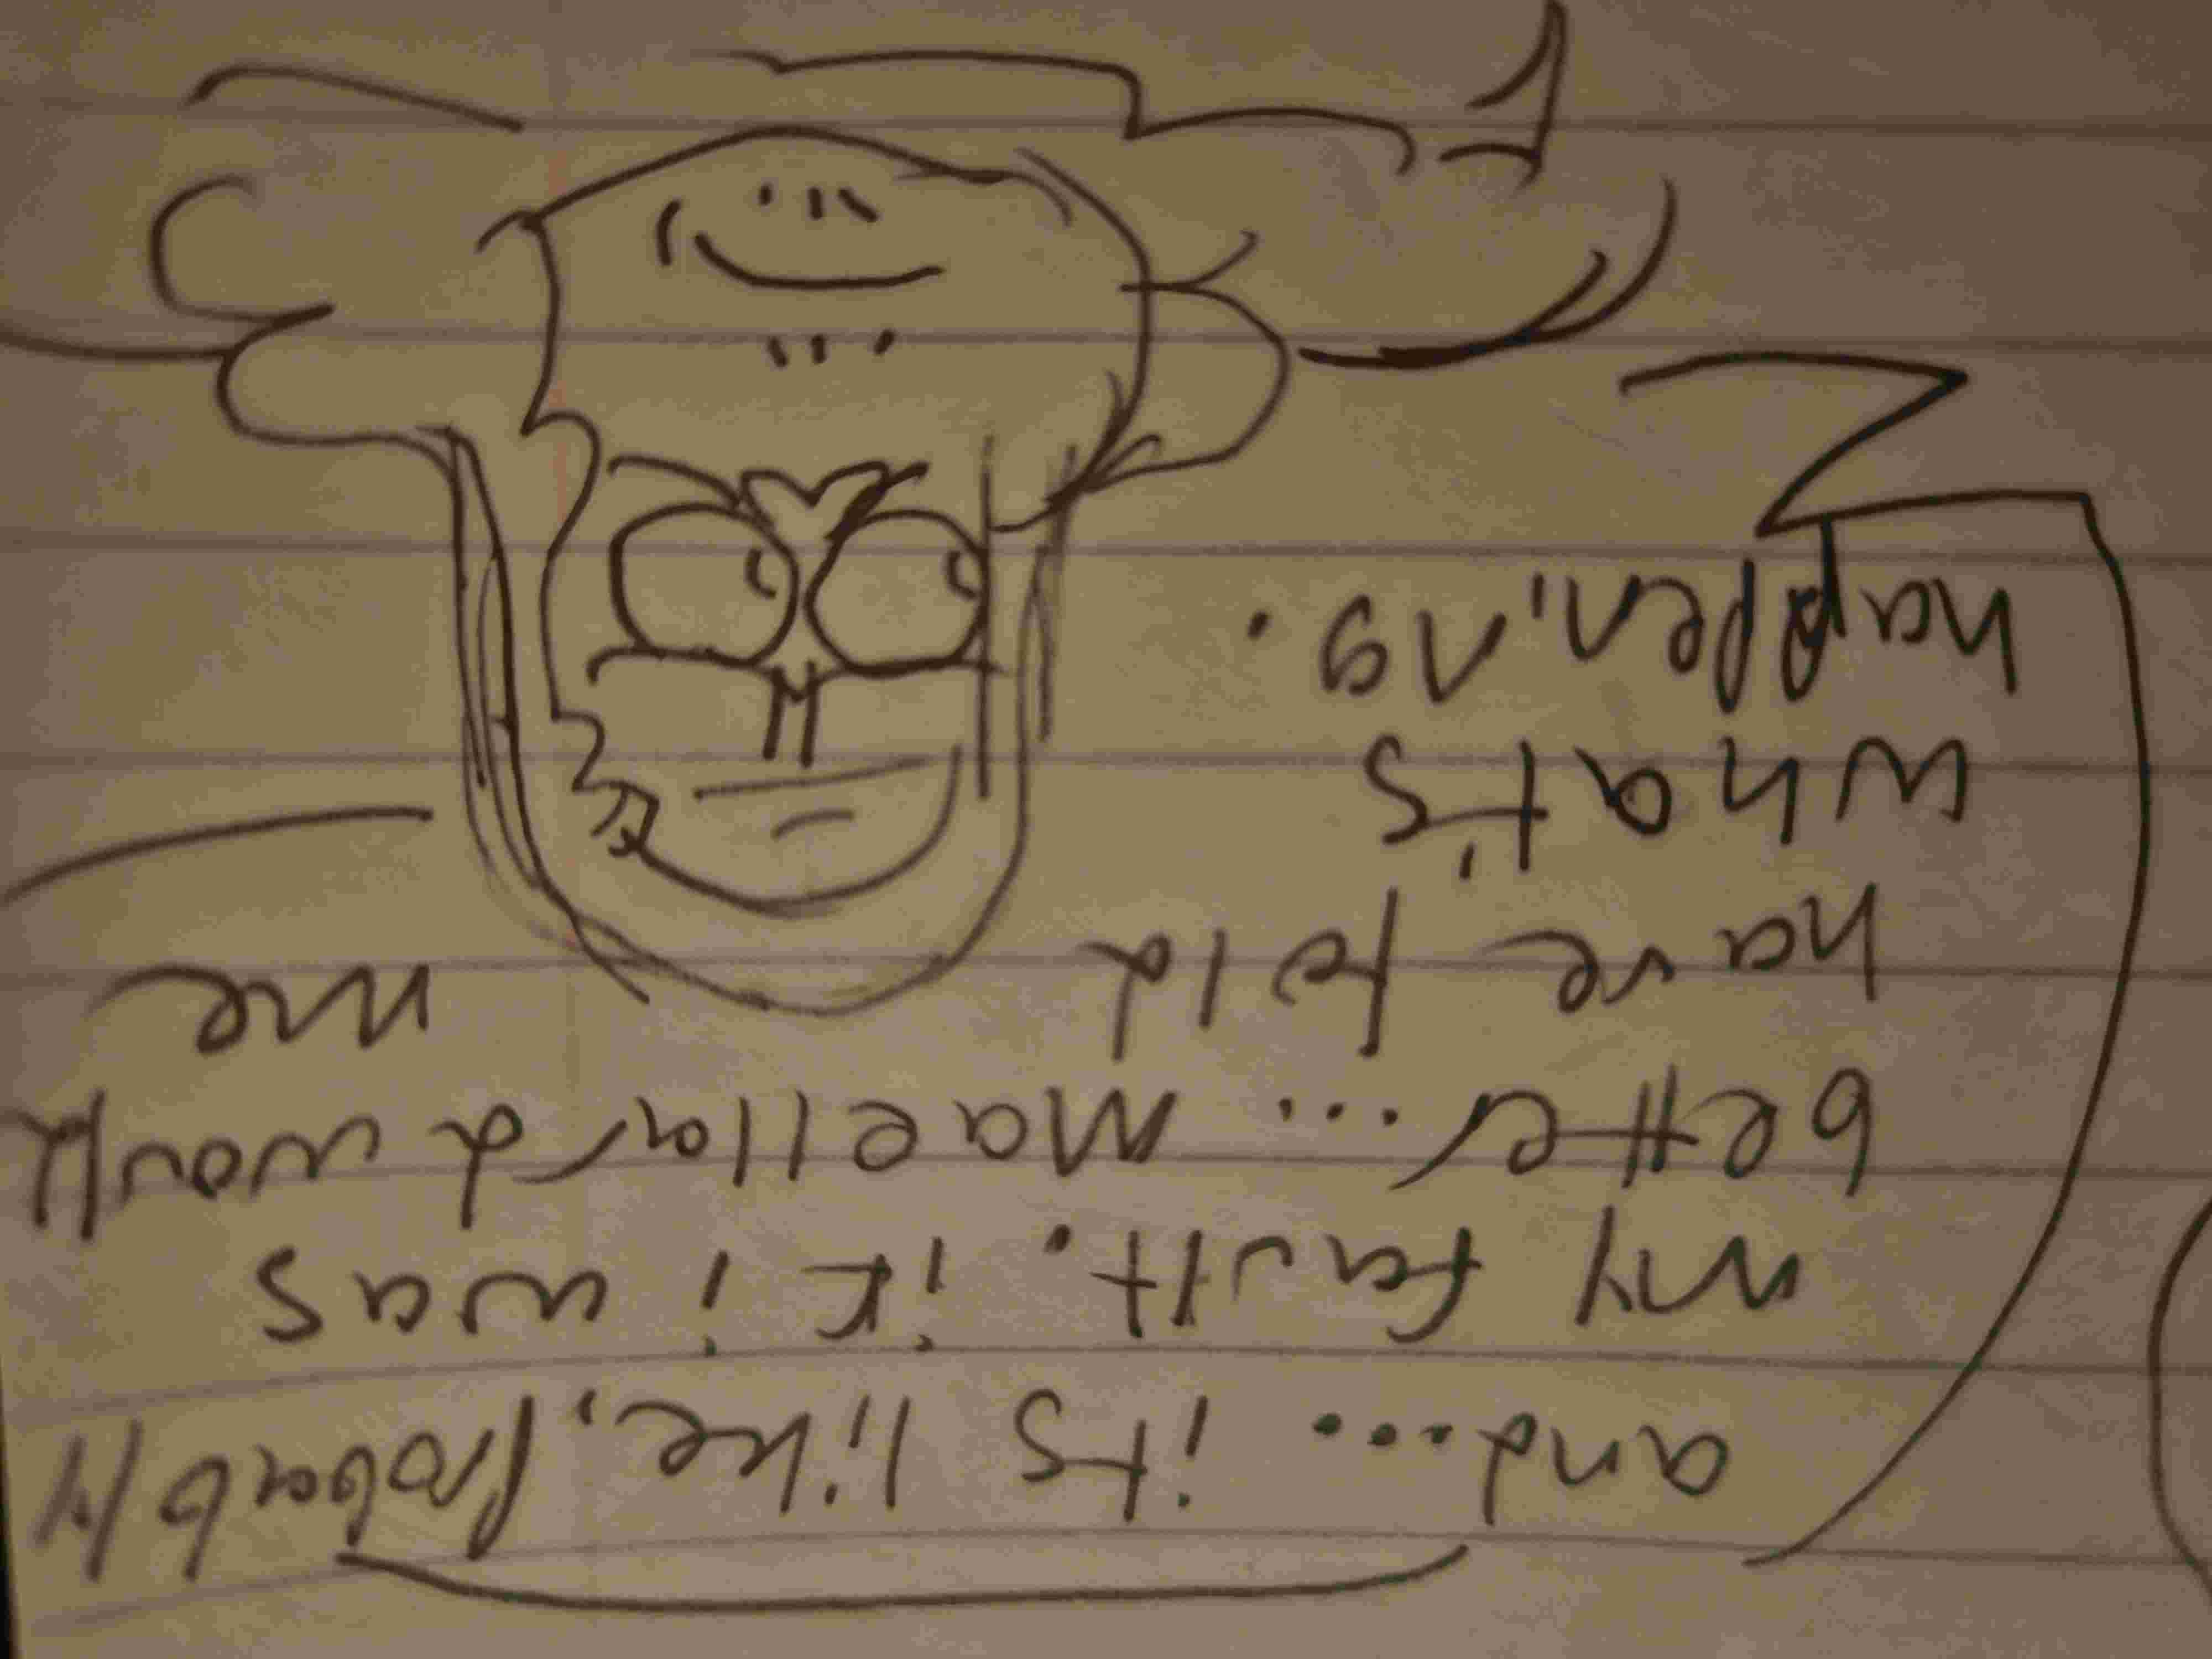 and... its like, Probably
my fault. if i was
better... maellard would
have told me
what's
happening.